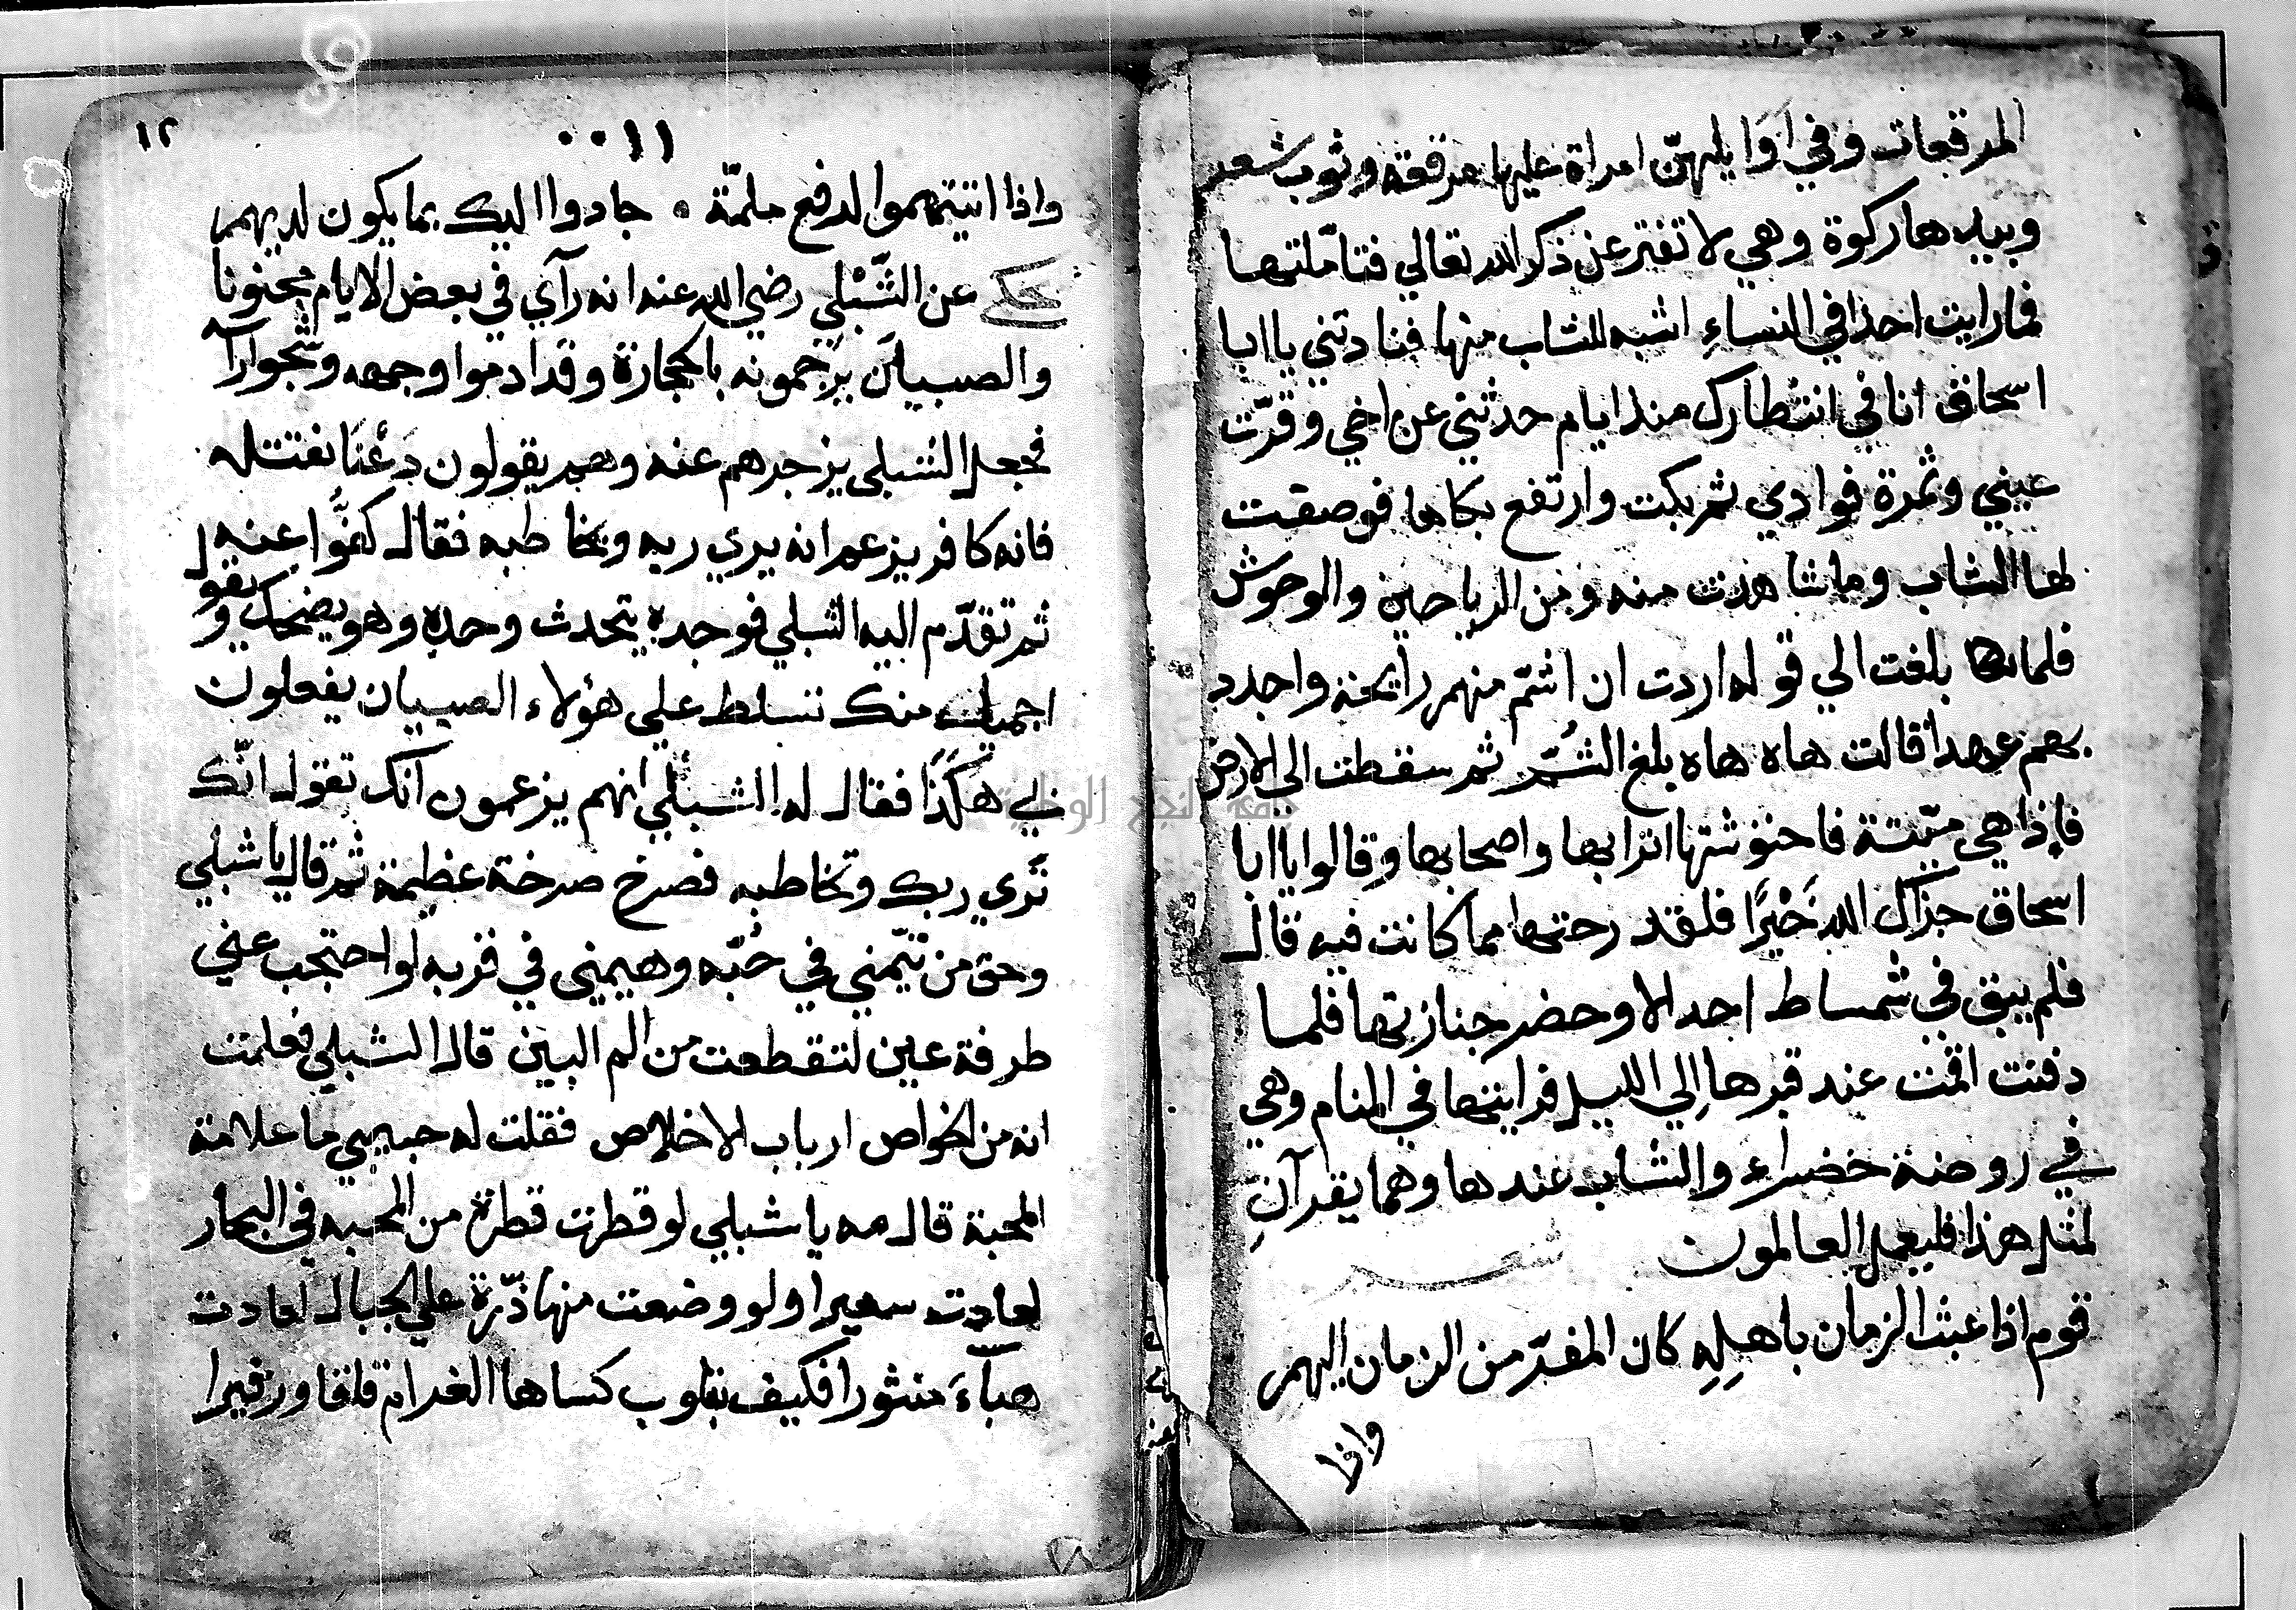 المرقعات وفي اوايلهنّ امراة عليها مرقعة وثوب شعر
وبيدها ركوة وهي لا تفتر عن ذكر الله تعالي فتاملتها
فما رايت احدا في النساءِ اشبه للشاب منها فنادتني يا ابا
اسحاق انا في انتظارك منذ ايام حدثني عن اخي وقرّت
عيني وثمرة فوادي ثم بكت وارتفع بكاها فوصفت
لها الشاب وما شاهدت منه ومن الرياحين والوحوش
فلما بلغت الي قوله اردت ان اشتم منهم رايحة واجدد
بهم عهدا قالت هاه هاه بلغ الشم ثم سقطت الي الارض
فإذا هي ميّتة فاحنوشتها اترابها واصحابها وقالوا يا ابا
اسحاق جزاك الله خَيْرًا فلقد رحتها مما كانت فيه قال
فلم يبق في شمساط احد الا وحضر جنازتها فلما
دفنت اقمت عند قبرها إلي الليل فرايتها في المنام وهي
في روضة خضراء والشاب عندها وهما يقرآنِ
لمثل هذا فليعمل العالمون شعر
قوم اذا عبث الزمان باهلِهِ كان المفرّ من الزمان اليهم
واذا
١١٠٠
١٢
واذا اتيتهموا لدفع ملمّة ٠ جادوا اليك بما يكون لديهم
حكي عن الشّبْلي رضي الله عنه انه رآي في بعض الايام مجنونا
والصبيان يَرْجمونه بالحجارة وقد ادموا وجهه وشجوا رآ
فجعل الشبلي يزجرهم عنه وهم يقولون دَعْنَا نقتله
فانه كافر يزعم انه يري ربه ويخاطبه فقال كفُّوا عنه
ثم تقدّم اليه الشبلي فوجده يتحدث وحده وهو يضحك ويقول
اجميل منك تسلط علي هؤلاء الصبيان يفعلون
بي هَكَذَا فقال له الشبلي انهم يزعمون انك تقول انّك
تَري ربك وتخاطبه فصرخ صرخة عظيمة ثم قال يا شبلي
وحق من تيّمني في حُبّه وهيمني في قربه لو احتجب عني
طرفة عين لتقطعت من الم البين قال الشبلي فعلمت
انه من الخواص ارباب الاخلاص فقلت له حبيبي ما علامة
المحبة قال مه يا شبلي لو قطرت قطرة من المحبه في البحار
لعادت سعيرا ولو وضعت منها ذّرة علي الجبال لعادت
هبآءَ منثورا فكيف بقلوب كساها الغرام قلقا وزفيرا
جامعة النجاح الوطنية